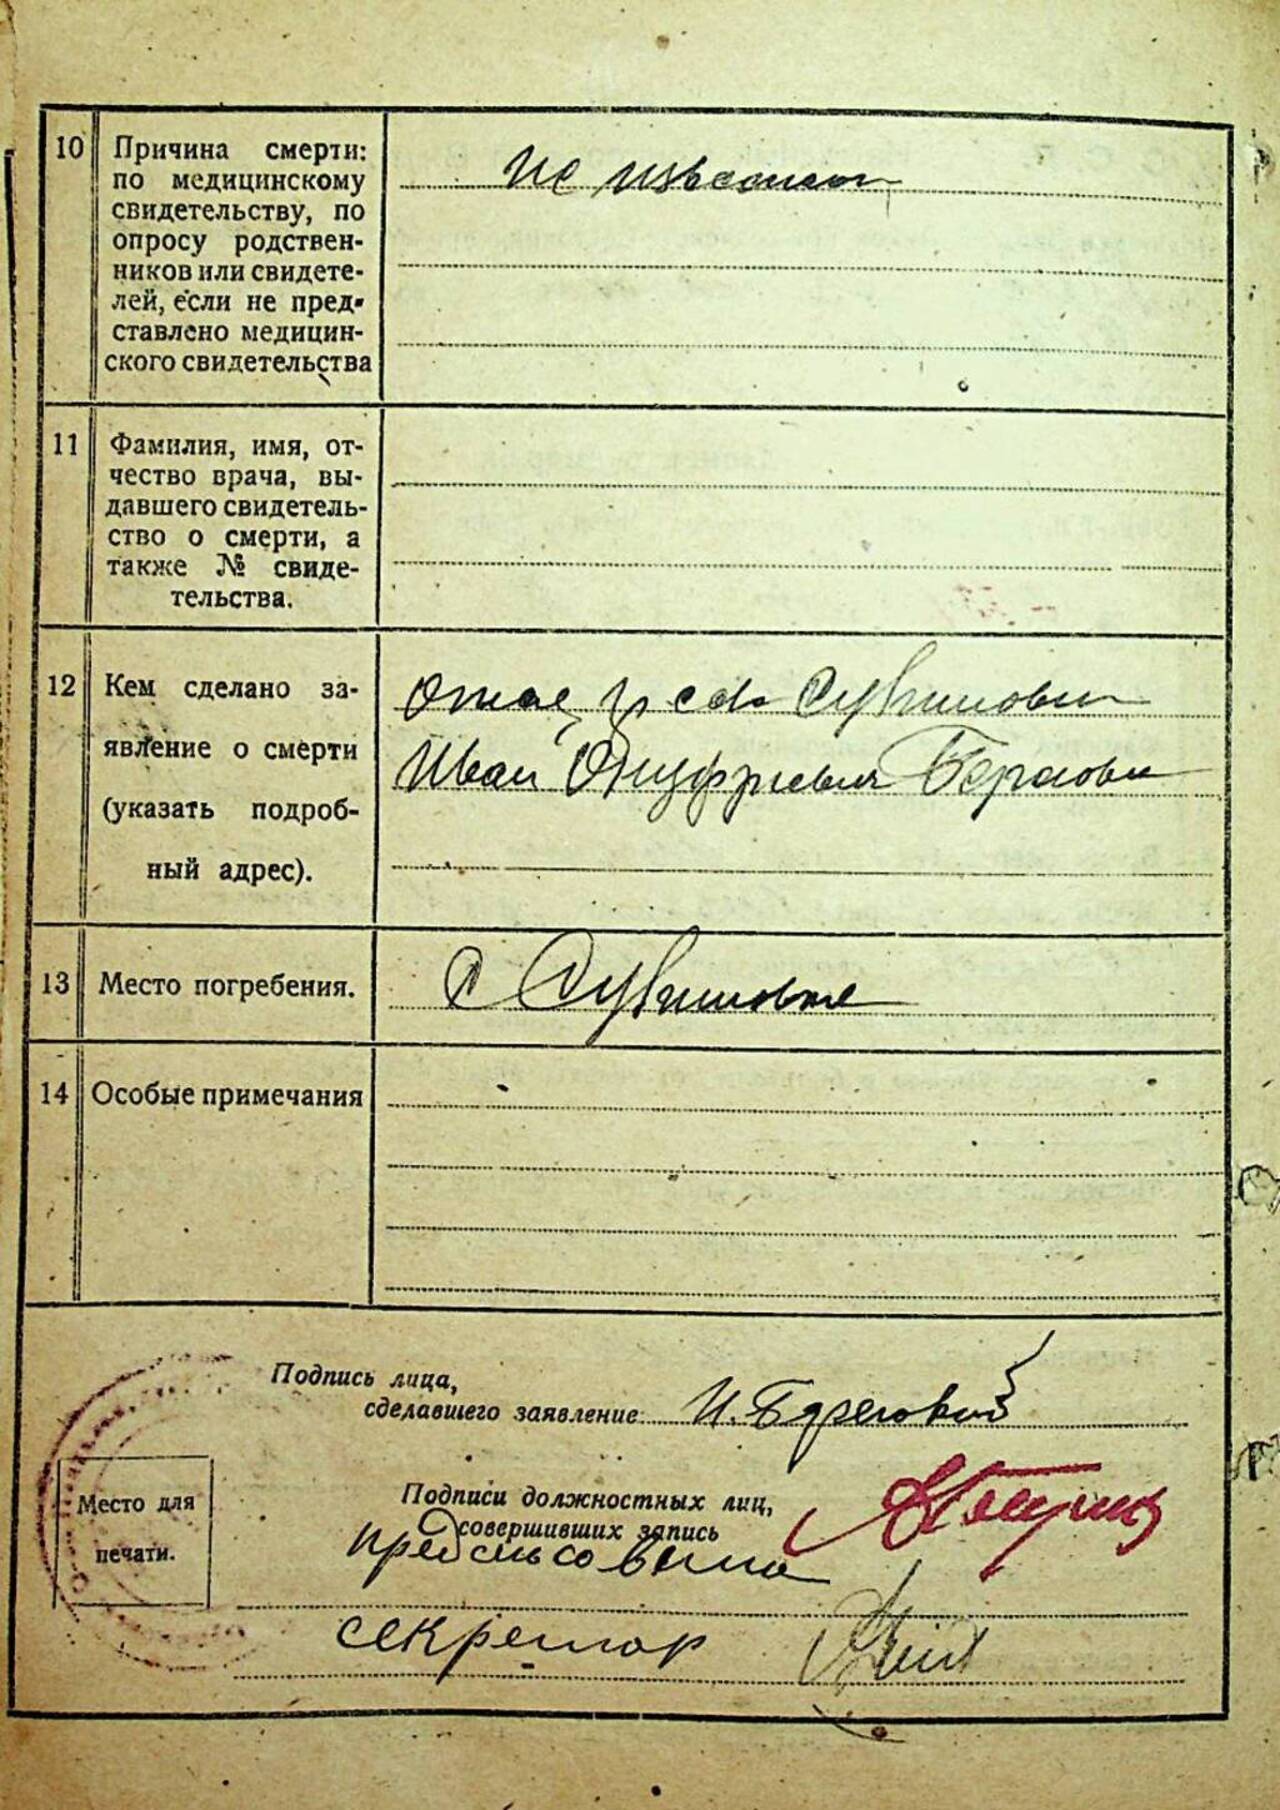 10 Причина смерти:
по медицинскому
свидетельству, по
опросу родствен-
ников или свидете-
лей, если не пред-
ставлено медицин-
ского свидетельства
не известно
11 Фамилия, имя, от-
чество врача, вы-
давшего свидетель-
ство о смерти, а
также № свиде-
тельства.
12 Кем сделано за-
явление о смерти
(указать подроб-
ный адрес).
Отец
Иван
13 Место погребения.
с
14 Особые примечания
Подпись лица,
сделавшего заявление: И. Береговой
Подписи должностных лиц,
совершивших запись
Место для
печати.
пред
секретар